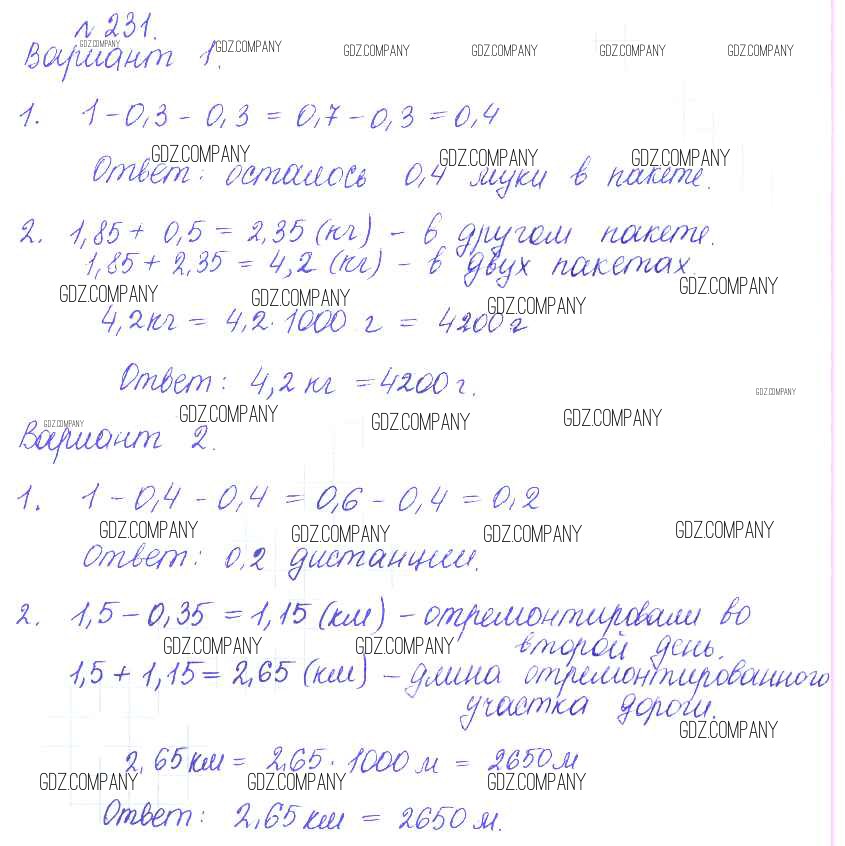 № 231.
GDZ.COMPANY
Вариант 1.
GDZ.COMPANY GDZ.COMPANY GDZ.COMPANY GDZ.COMPANY GDZ.COMPANY
1. 1 - 0,3 - 0,3 = 0,7 - 0,3 = 0,4
GDZ.COMPANY GDZ.COMPANY GDZ.COMPANY
Ответ: осталось 0,4 муки в пакете.
2. 1,85 + 0,5 = 2,35 (кг) - в другом пакете.
1,85 + 2,35 = 4,2 (кг) - в двух пакетах
GDZ.COMPANY GDZ.COMPANY GDZ.COMPANY GDZ.COMPANY
4,2 кг = 4,2 · 1000 г = 4200 г
Ответ: 4,2 кг = 4200 г.
GDZ.COMPANY
GDZ.COMPANY GDZ.COMPANY GDZ.COMPANY GDZ.COMPANY
Вариант 2.
1. 1 - 0,4 - 0,4 = 0,6 - 0,4 = 0,2
GDZ.COMPANY GDZ.COMPANY GDZ.COMPANY GDZ.COMPANY
Ответ: 0,2 дистанции.
2. 1,5 - 0,35 = 1,15 (км) - отремонтировали во
GDZ.COMPANY GDZ.COMPANY
второй день.
1,5 + 1,15 = 2,65 (км) - длина отремонтированного
участка дороги.
GDZ.COMPANY
2,65 км = 2,65 · 1000 м = 2650 м
GDZ.COMPANY GDZ.COMPANY GDZ.COMPANY
Ответ: 2,65 км = 2650 м.